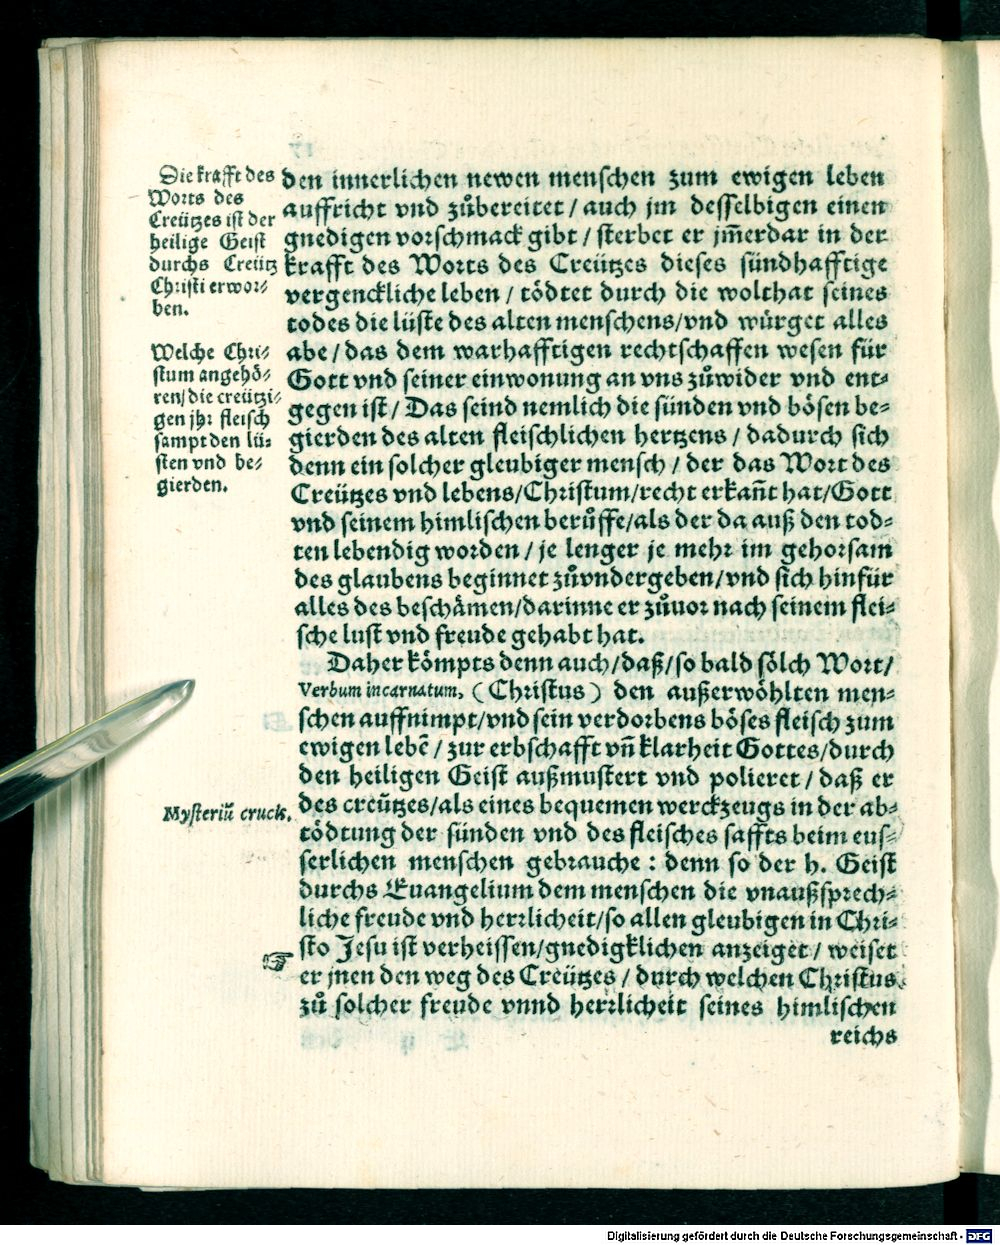 Die krafft des
Worts des
Creützes ist der
heilige Geist
durchs Creütz
Christi erwor⸗
ben.
Welche Chri⸗
stum angehö⸗
ren/die creützi⸗
gen jhr fleisch
sampt den lü⸗
sten vnd be⸗
gierden.
den innerlichen newen menschen zum ewigen leben
auffricht vnd zůbereitet/auch jm desselbigen einen
gnedigen vorschmack gibt/sterbet er jm̃erdar in der
krafft des Worts des Creützes dieses sündhafftige
vergenckliche leben/tödtet durch die wolthat seines
todes die lüste des alten menschens/vnd würget alles
abe/das dem warhafftigen rechtschaffen wesen für
Gott vnd seiner einwonung an vns zůwider vnd ent⸗
gegen ist/Das seind nemlich die sünden vnd bösen be⸗
gierden des alten fleischlichen hertzens/dadurch sich
denn ein solcher gleubiger mensch/der das Wort des
Creützes vnd lebens/Christum/recht erkañt hat/Gott
vnd seinem himlischen berůffe/als der da auß den tod⸗
ten lebendig worden/je lenger je mehr im gehorsam
des glaubens beginnet zůvndergeben/vnd sich hinfür
alles des beschämen/darinne er zůvor nach seinem flei⸗
sche lust vnd freude gehabt hat.
Daher kömpts denn auch/daß/so bald sölch Wort/
Verbum incarnatum, (Christus) den außerwöhlten men⸗
schen auffnimpt/vnd sein verdorbens böses fleisch zum
ewigen lebẽ/zur erbschafft vñ klarheit Gottes/durch
den heiligen Geist außmustert vnd polieret/daß er
Mysteriũ crucis.
des creützes/als eines bequemen werckzeugs in der ab⸗
tödtung der sünden vnd des fleisches saffts beim eus⸗
serlichen menschen gebrauche: denn so der h. Geist
durchs Euangelium dem menschen die vnaußsprech⸗
liche freude vnd herrlicheit/so allen gleubigen in Chri⸗
sto Jesu ist verheissen/gnedigklichen anzeiget/weiset
☞ er jnen den weg des Creützes/durch welchen Christus
zů solcher freude vnnd herrlicheit seines himlischen
reichs
Digitalisierung gefördert durch die Deutsche Forschungsgemeinschaft - DFG